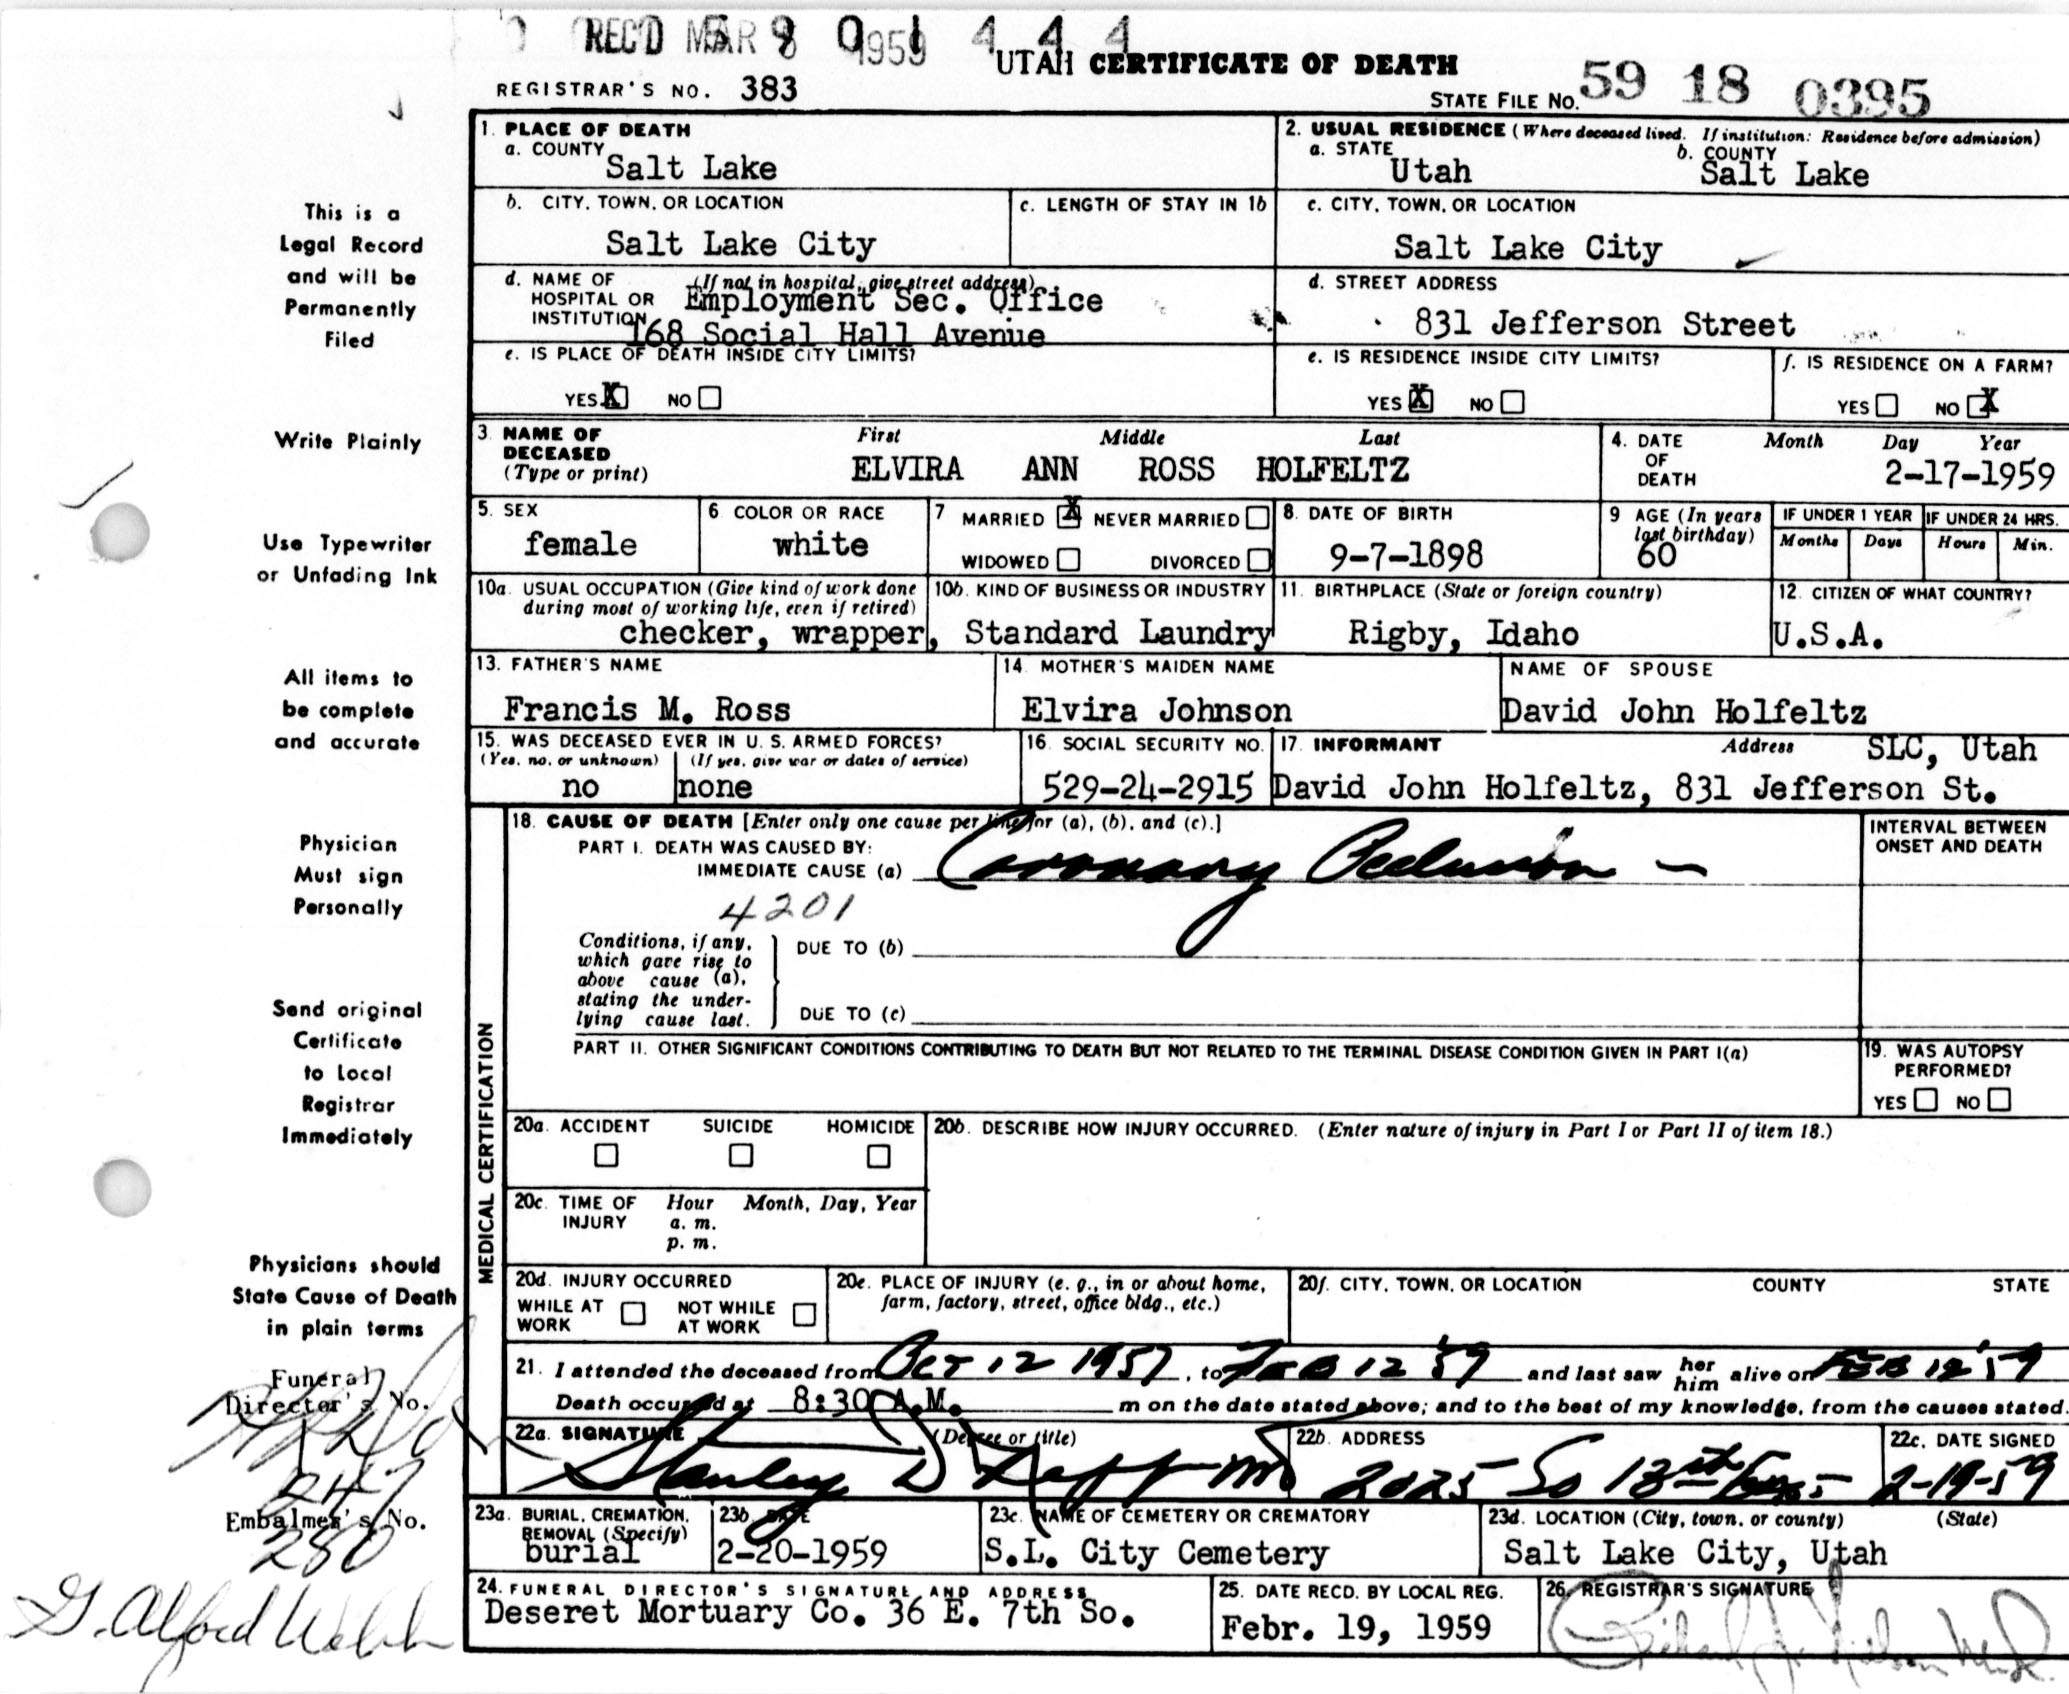 REC'D MAR 9 1959 4 4 4
UTAH CERTIFICATE OF DEATH
REGISTRAR'S NO. 383
STATE FILE NO. 59 18 0395
This is a
Legal Record
and will be
Permanently
Filed
Write Plainly
Use Typewriter
or Unfading Ink
All items to
be complete
and accurate
Physician
Must sign
Personally
Send original
Certificate
to Local
Registrar
Immediately
Physicians should
State Cause of Death
in plain terms
Funeral
Director's No.
247
Embalmer's No.
280
G. Alford
1. PLACE OF DEATH
a. COUNTY
Salt Lake
2. USUAL RESIDENCE (Where deceased lived. If institution: Residence before admission)
a. STATE b. COUNTY
Utah Salt Lake
b. CITY, TOWN, OR LOCATION c. LENGTH OF STAY IN 1b
Salt Lake City
c. CITY, TOWN, OR LOCATION
Salt Lake City
d. NAME OF HOSPITAL OR INSTITUTION (If not in hospital, give street address)
Employment Sec. Office
168 Social Hall Avenue
d. STREET ADDRESS
831 Jefferson Street
e. IS PLACE OF DEATH INSIDE CITY LIMITS?
YES X NO
e. IS RESIDENCE INSIDE CITY LIMITS?
YES X NO
f. IS RESIDENCE ON A FARM?
YES NO X
3. NAME OF DECEASED (Type or print) First Middle Last
ELVIRA ANN ROSS HOLFELTZ
4. DATE OF DEATH Month Day Year
2-17-1959
5. SEX
female
6 COLOR OR RACE
white
7 MARRIED X NEVER MARRIED
WIDOWED DIVORCED
8. DATE OF BIRTH
9-7-1898
9 AGE (In years last birthday)
60
IF UNDER 1 YEAR IF UNDER 24 HRS.
Months Days Hours Min.
10a. USUAL OCCUPATION (Give kind of work done during most of working life, even if retired)
10b. KIND OF BUSINESS OR INDUSTRY
checker, wrapper, Standard Laundry
11. BIRTHPLACE (State or foreign country)
Rigby, Idaho
12. CITIZEN OF WHAT COUNTRY?
U.S.A.
13. FATHER'S NAME
Francis M. Ross
14. MOTHER'S MAIDEN NAME
Elvira Johnson
NAME OF SPOUSE
David John Holfeltz
15. WAS DECEASED EVER IN U. S. ARMED FORCES?
(Yes, no, or unknown) (If yes, give war or dates of service)
no none
16. SOCIAL SECURITY NO.
529-24-2915
17. INFORMANT Address SLC, Utah
David John Holfeltz, 831 Jefferson St.
MEDICAL CERTIFICATION
18. CAUSE OF DEATH [Enter only one cause per line for (a), (b), and (c).]
INTERVAL BETWEEN ONSET AND DEATH
PART I. DEATH WAS CAUSED BY:
IMMEDIATE CAUSE (a) Coronary Occlusion —
4201
Conditions, if any, which gave rise to above cause (a), stating the underlying cause last.
DUE TO (b)
DUE TO (c)
PART II. OTHER SIGNIFICANT CONDITIONS CONTRIBUTING TO DEATH BUT NOT RELATED TO THE TERMINAL DISEASE CONDITION GIVEN IN PART I(a)
19. WAS AUTOPSY PERFORMED?
YES NO
20a. ACCIDENT SUICIDE HOMICIDE
20b. DESCRIBE HOW INJURY OCCURRED. (Enter nature of injury in Part I or Part II of item 18.)
20c. TIME OF INJURY Hour Month, Day, Year
a. m.
p. m.
20d. INJURY OCCURRED
WHILE AT WORK NOT WHILE AT WORK
20e. PLACE OF INJURY (e. g., in or about home, farm, factory, street, office bldg., etc.)
20f. CITY, TOWN, OR LOCATION COUNTY STATE
21. I attended the deceased from Oct 12 1957, to Feb 12 '59 and last saw her him alive on Feb 12 '59
Death occurred at 8:30 A.M. m on the date stated above; and to the best of my knowledge, from the causes stated.
22a. SIGNATURE (Degree or title)
Stanley D MD
22b. ADDRESS
2025 So 13th East
22c. DATE SIGNED
2-19-59
23a. BURIAL, CREMATION, REMOVAL (Specify)
burial
23b. DATE
2-20-1959
23c. NAME OF CEMETERY OR CREMATORY
S.L. City Cemetery
23d. LOCATION (City, town, or county) (State)
Salt Lake City, Utah
24. FUNERAL DIRECTOR'S SIGNATURE AND ADDRESS
Deseret Mortuary Co. 36 E. 7th So.
25. DATE RECD. BY LOCAL REG.
Febr. 19, 1959
26. REGISTRAR'S SIGNATURE